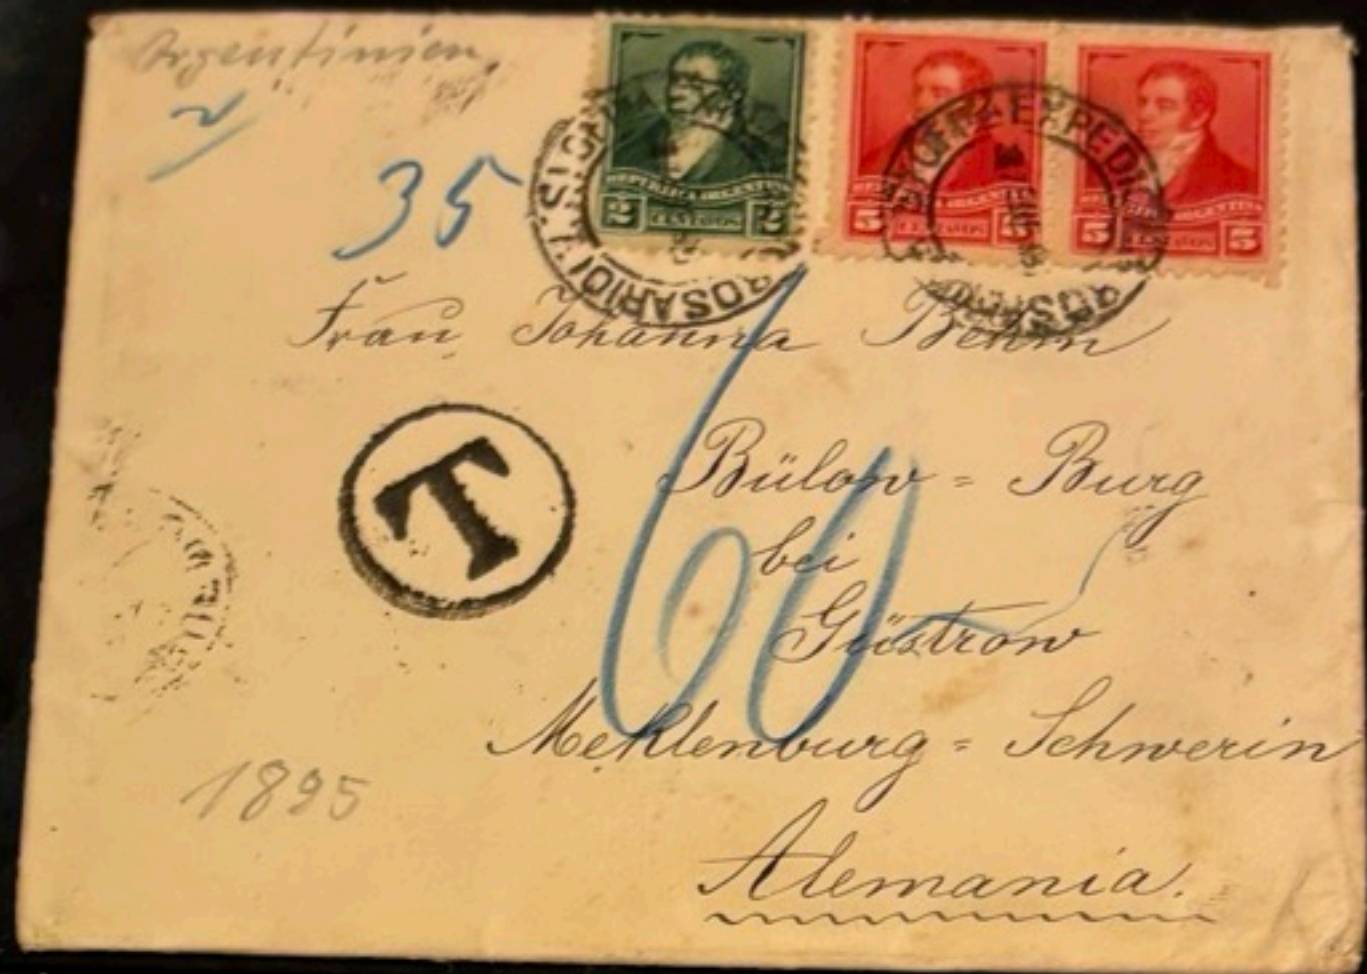 Argentinien
35
REPUBLICA ARGENTINA
2 CENTAVOS 2
REPUBLICA ARGENTINA
5 CENTAVOS 5
REPUBLICA ARGENTINA
5 CENTAVOS 5
ROSARIO
EXPEDICIO
ROSARIO
Frau Johanna Behm
T
60
Bülow = Burg
bei
Güstrow
Meklenburg = Schwerin
1895
Alemania.